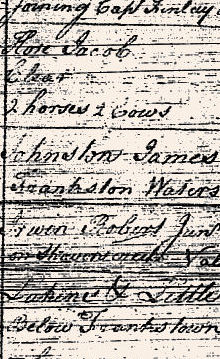 joining Capt Finley
Hore Jacob
Clear
2 horses 2 Cows
Johnston James
Frankston Waters
Irwin Robert Junr
on Shavers creek
Lukins & Little
Below Frankstown